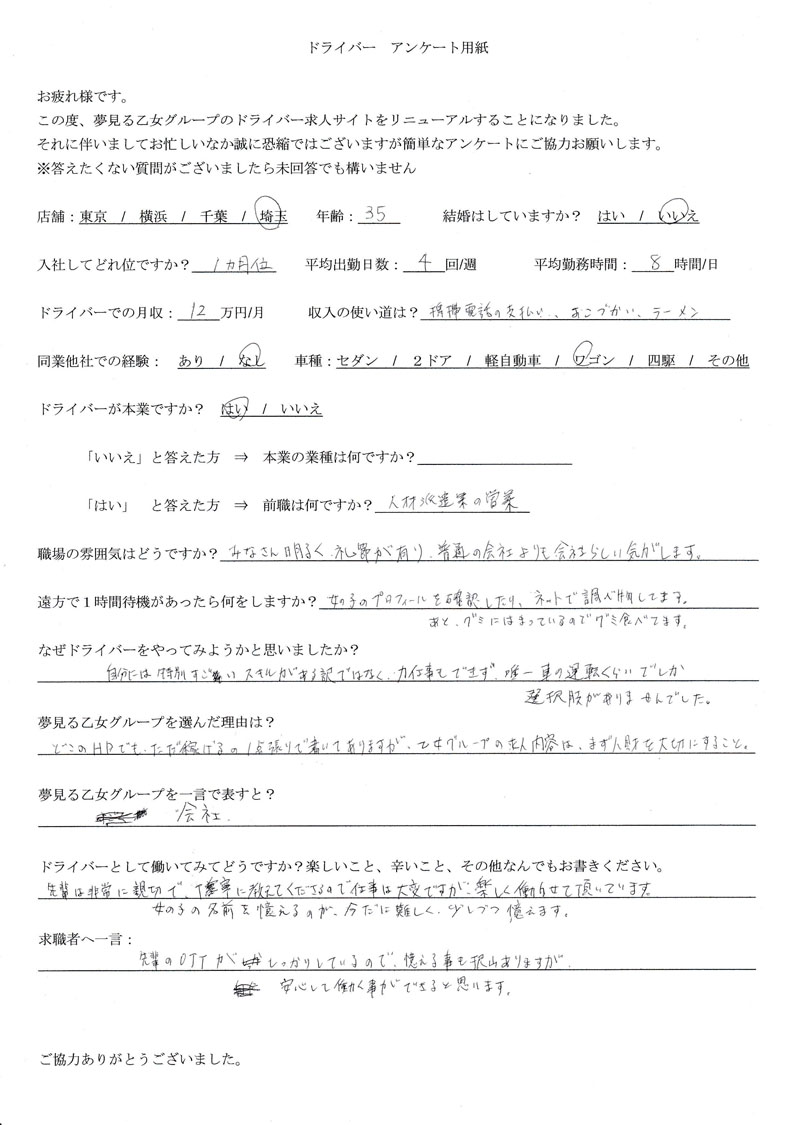 ドライバー　アンケート用紙
お疲れ様です。
この度、夢見る乙女グループのドライバー求人サイトをリニューアルすることになりました。
それに伴いましてお忙しいなか誠に恐縮ではございますが簡単なアンケートにご協力お願いします。
※答えたくない質問がございましたら未回答でも構いません
店舗：東京 / 横浜 / 千葉 / 埼玉　年齢：35　結婚はしていますか？　はい / いいえ
入社してどれ位ですか？ 1ヵ月位　平均出勤日数：4 回/週　平均勤務時間：8 時間/日
ドライバーでの月収：12 万円/月　収入の使い道は？ 携帯電話の支払い、おこづかい、ラーメン
同業他社での経験：　あり / なし　車種：セダン / 2ドア / 軽自動車 / ワゴン / 四駆 / その他
ドライバーが本業ですか？　はい / いいえ
「いいえ」と答えた方　⇒　本業の業種は何ですか？
「はい」　と答えた方　⇒　前職は何ですか？ 人材派遣業の営業
職場の雰囲気はどうですか？ みなさん明るく、礼節が有り、普通の会社よりも会社らしい気がします。
遠方で1時間待機があったら何をしますか？ 女の子のプロフィールを確認したり、ネットで調べ物してます。
あと、グミにはまっているのでグミ食べてます。
なぜドライバーをやってみようかと思いましたか？
自分には特別すごい スキルがある訳ではなく、力仕事もできず、唯一車の運転くらいでしか
選択肢がありませんでした。
夢見る乙女グループを選んだ理由は？
どこのHPでも、ただ稼げるの1点張りで書いてありますが、乙女グループの求人内容は、まず人財を大切にすること。
夢見る乙女グループを一言で表すと？
会社。
ドライバーとして働いてみてどうですか？楽しいこと、辛いこと、その他なんでもお書きください。
先輩は非常に親切で、丁寧に教えてくださるので仕事は大変ですが、楽しく働らせて頂いています。
女の子の名前を憶えるのが、今だに難しく、少しづつ憶えます。
求職者へ一言：
先輩のOJTが しっかりしているので、憶える事も沢山ありますが、
安心して働く事ができると思います。
ご協力ありがとうございました。